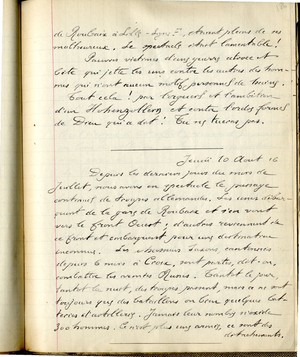 de Roubaix à Lille - ligne F, étaient pleins de ces
malheureux. Le spectacle était lamentable !
Pauvres victimes d'une guerre atroce et
bête qui jette les uns contre les autres des hom-
mes qui n'ont aucun motif personnel de haine.
Tout cela ! par l'orgueil et l'ambition
d'un Hohenzollern et contre toutes formes
de Dieu qui a dit : Tu ne tueras pas.
Jeudi 10 Août 16
Depuis les derniers jours du mois de
Juillet, nous avons en spectacle le passage
continuel de troupes allemandes. Les unes débar-
quent de la gare de Roubaix et s'en vont
vers le front Ouest ; d'autres reviennent de
ce front et embarquent pour une destination
inconnue. Les Saxons cantonnés
depuis le mois à Croix, sont partis, dit-on,
combattre les armées Russes. Tantôt le jour,
tantôt la nuit, des troupes passent, mais ce ne sont
toujours que des bataillons ou bien quelques bat-
teries d'artillerie. Jamais leur nombre n'excède
300 hommes. Ce n'est plus une armée, ce sont des
détachements.